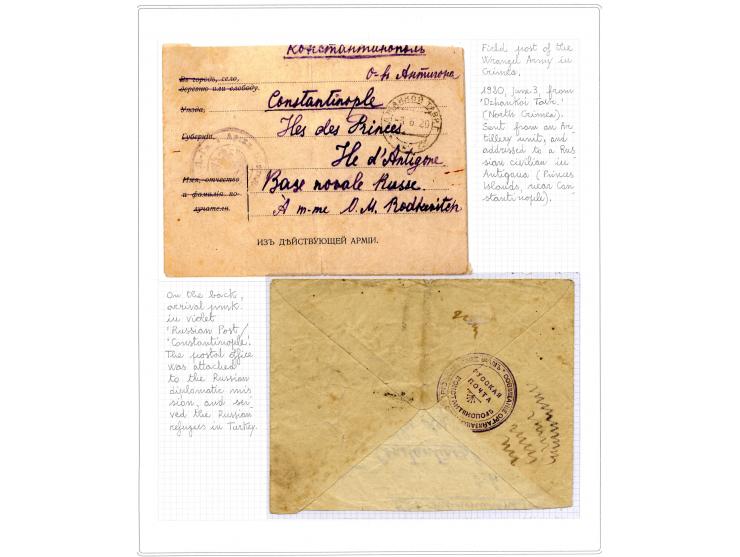 Константинополь
о-въ Антигона
Въ городъ, село,
деревню или слободу.
Constantinople
Уѣзда,
Iles des Princes.
Губерніи,
Ile d'Antigone
Имя, отчество
и фамилія по-
лучателя.
Base navale Russe.
À m-me O. M. Rodkevitch
ИЗЪ ДѢЙСТВУЮЩЕЙ АРМІИ.
6. 20
Field post of the
Wrangel Army in
Crimea.
1920, June 3, from
'Dzhankoi Tavr.'
(North Crimea).
Sent from an Ar-
tillery unit, and
addressed to a Rus
sian civilian in
Antigona (Princes
Islands, near Con
stantinople).
On the back,
arrival pmk.
in violet
'Russian Post/
'Constantinople'.
The postal office
was attached
to the Russian
diplomatic mis
sion, and ser-
ved the Russian
refugees in Turkey.
РУССКАЯ
ПОЧТА